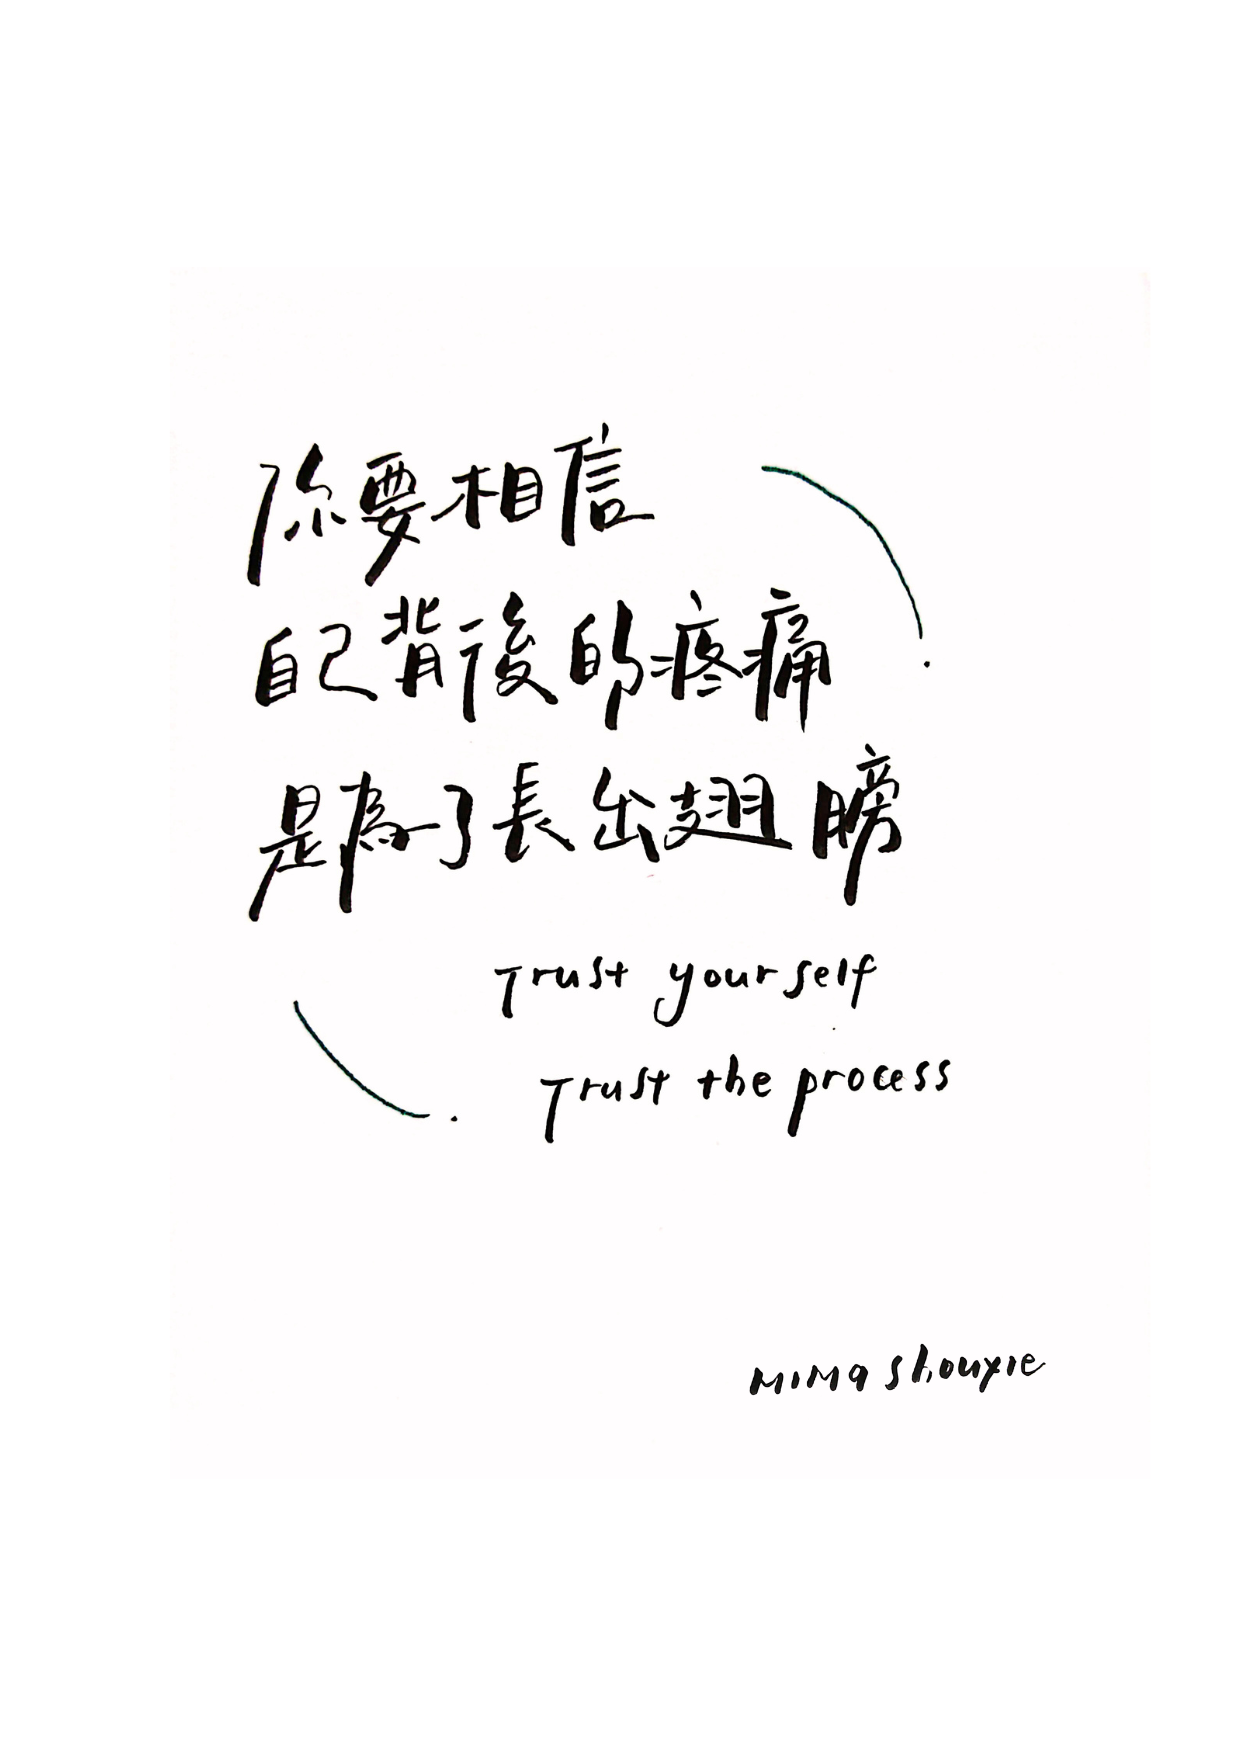 你要相信
自己背後的疼痛
是為了長出翅膀
Trust yourself
Trust the process
MIMA shouxie